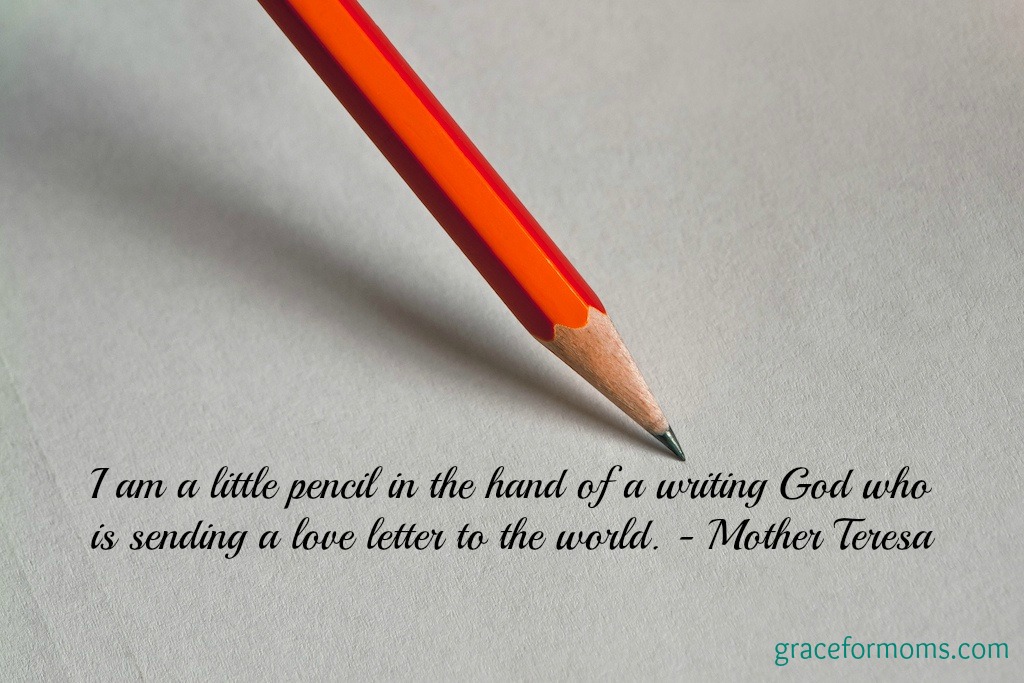 I am a little pencil in the hand of a writing God who
is sending a love letter to the world. - Mother Teresa
graceformoms.com